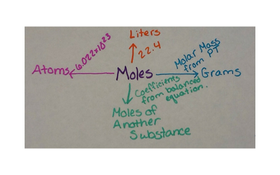 Liters
22.4
6.022x10²³
Molar Mass
from PT
Atoms
Moles
Grams
Coefficients
from balanced
equation.
Moles of
Another
Substance